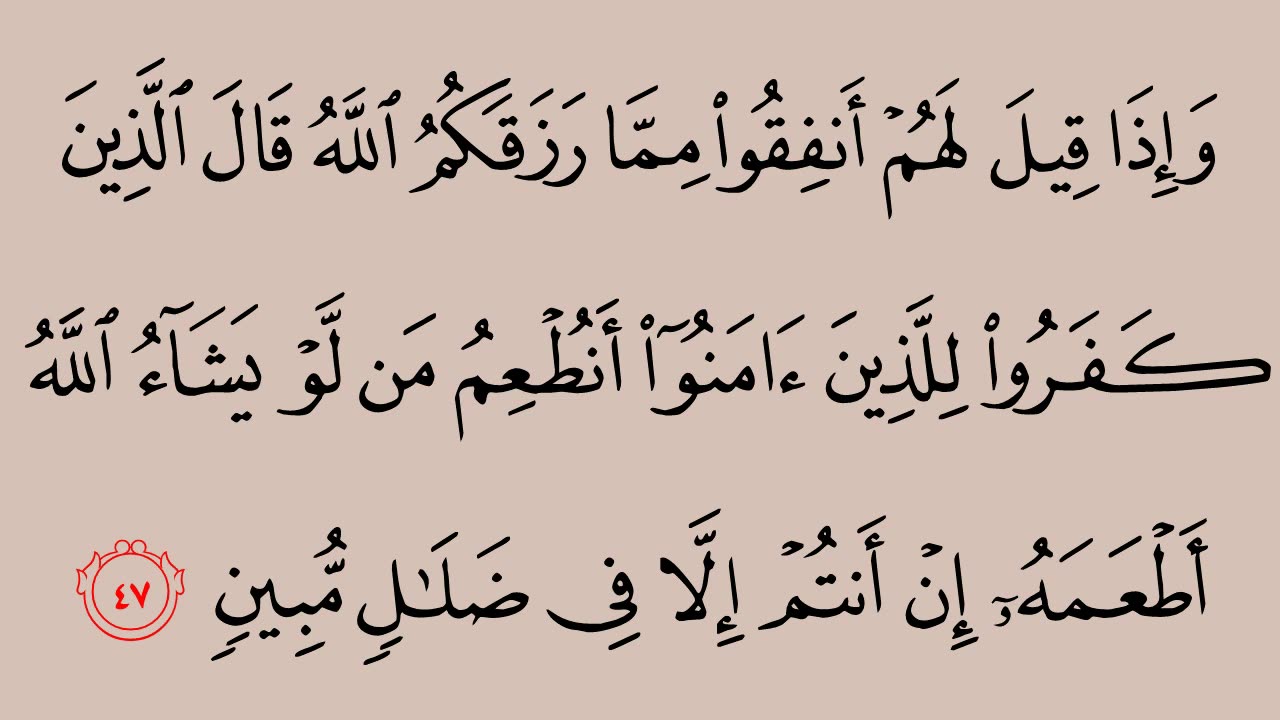 وَإِذَا قِيلَ لَهُمۡ أَنفِقُواْ مِمَّا رَزَقَكُمُ ٱللَّهُ قَالَ ٱلَّذِينَ
كَفَرُواْ لِلَّذِينَ ءَامَنُوٓاْ أَنُطۡعِمُ مَن لَّوۡ يَشَآءُ ٱللَّهُ
أَطۡعَمَهُۥٓ إِنۡ أَنتُمۡ إِلَّا فِي ضَلَٰلٖ مُّبِينٖ ٤٧